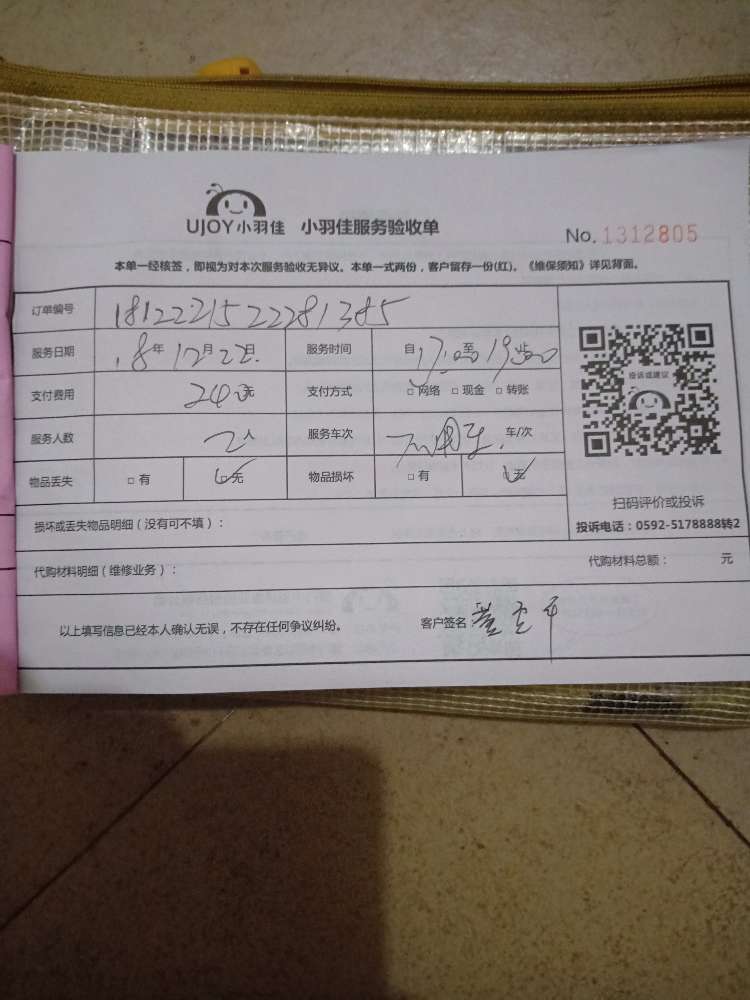 UJOY小羽佳 小羽佳服务验收单
No. 1312805
本单一经核签，即视为对本次服务验收无异议。本单一式两份，客户留存一份(红)。《维保须知》详见背面。
订单编号 1812221522281385
服务日期 18年12月22日 服务时间 自17:00至19:00止
支付费用 240元 支付方式 □网络 □现金 □转账
服务人数 2人 服务车次 车/次
物品丢失 □有 □无 物品损坏 □有 □无
投诉或建议
扫码评价或投诉
投诉电话：0592-5178888转2
损坏或丢失物品明细（没有可不填）：
代购材料明细（维修业务）： 代购材料总额： 元
以上填写信息已经本人确认无误，不存在任何争议纠纷。 客户签名